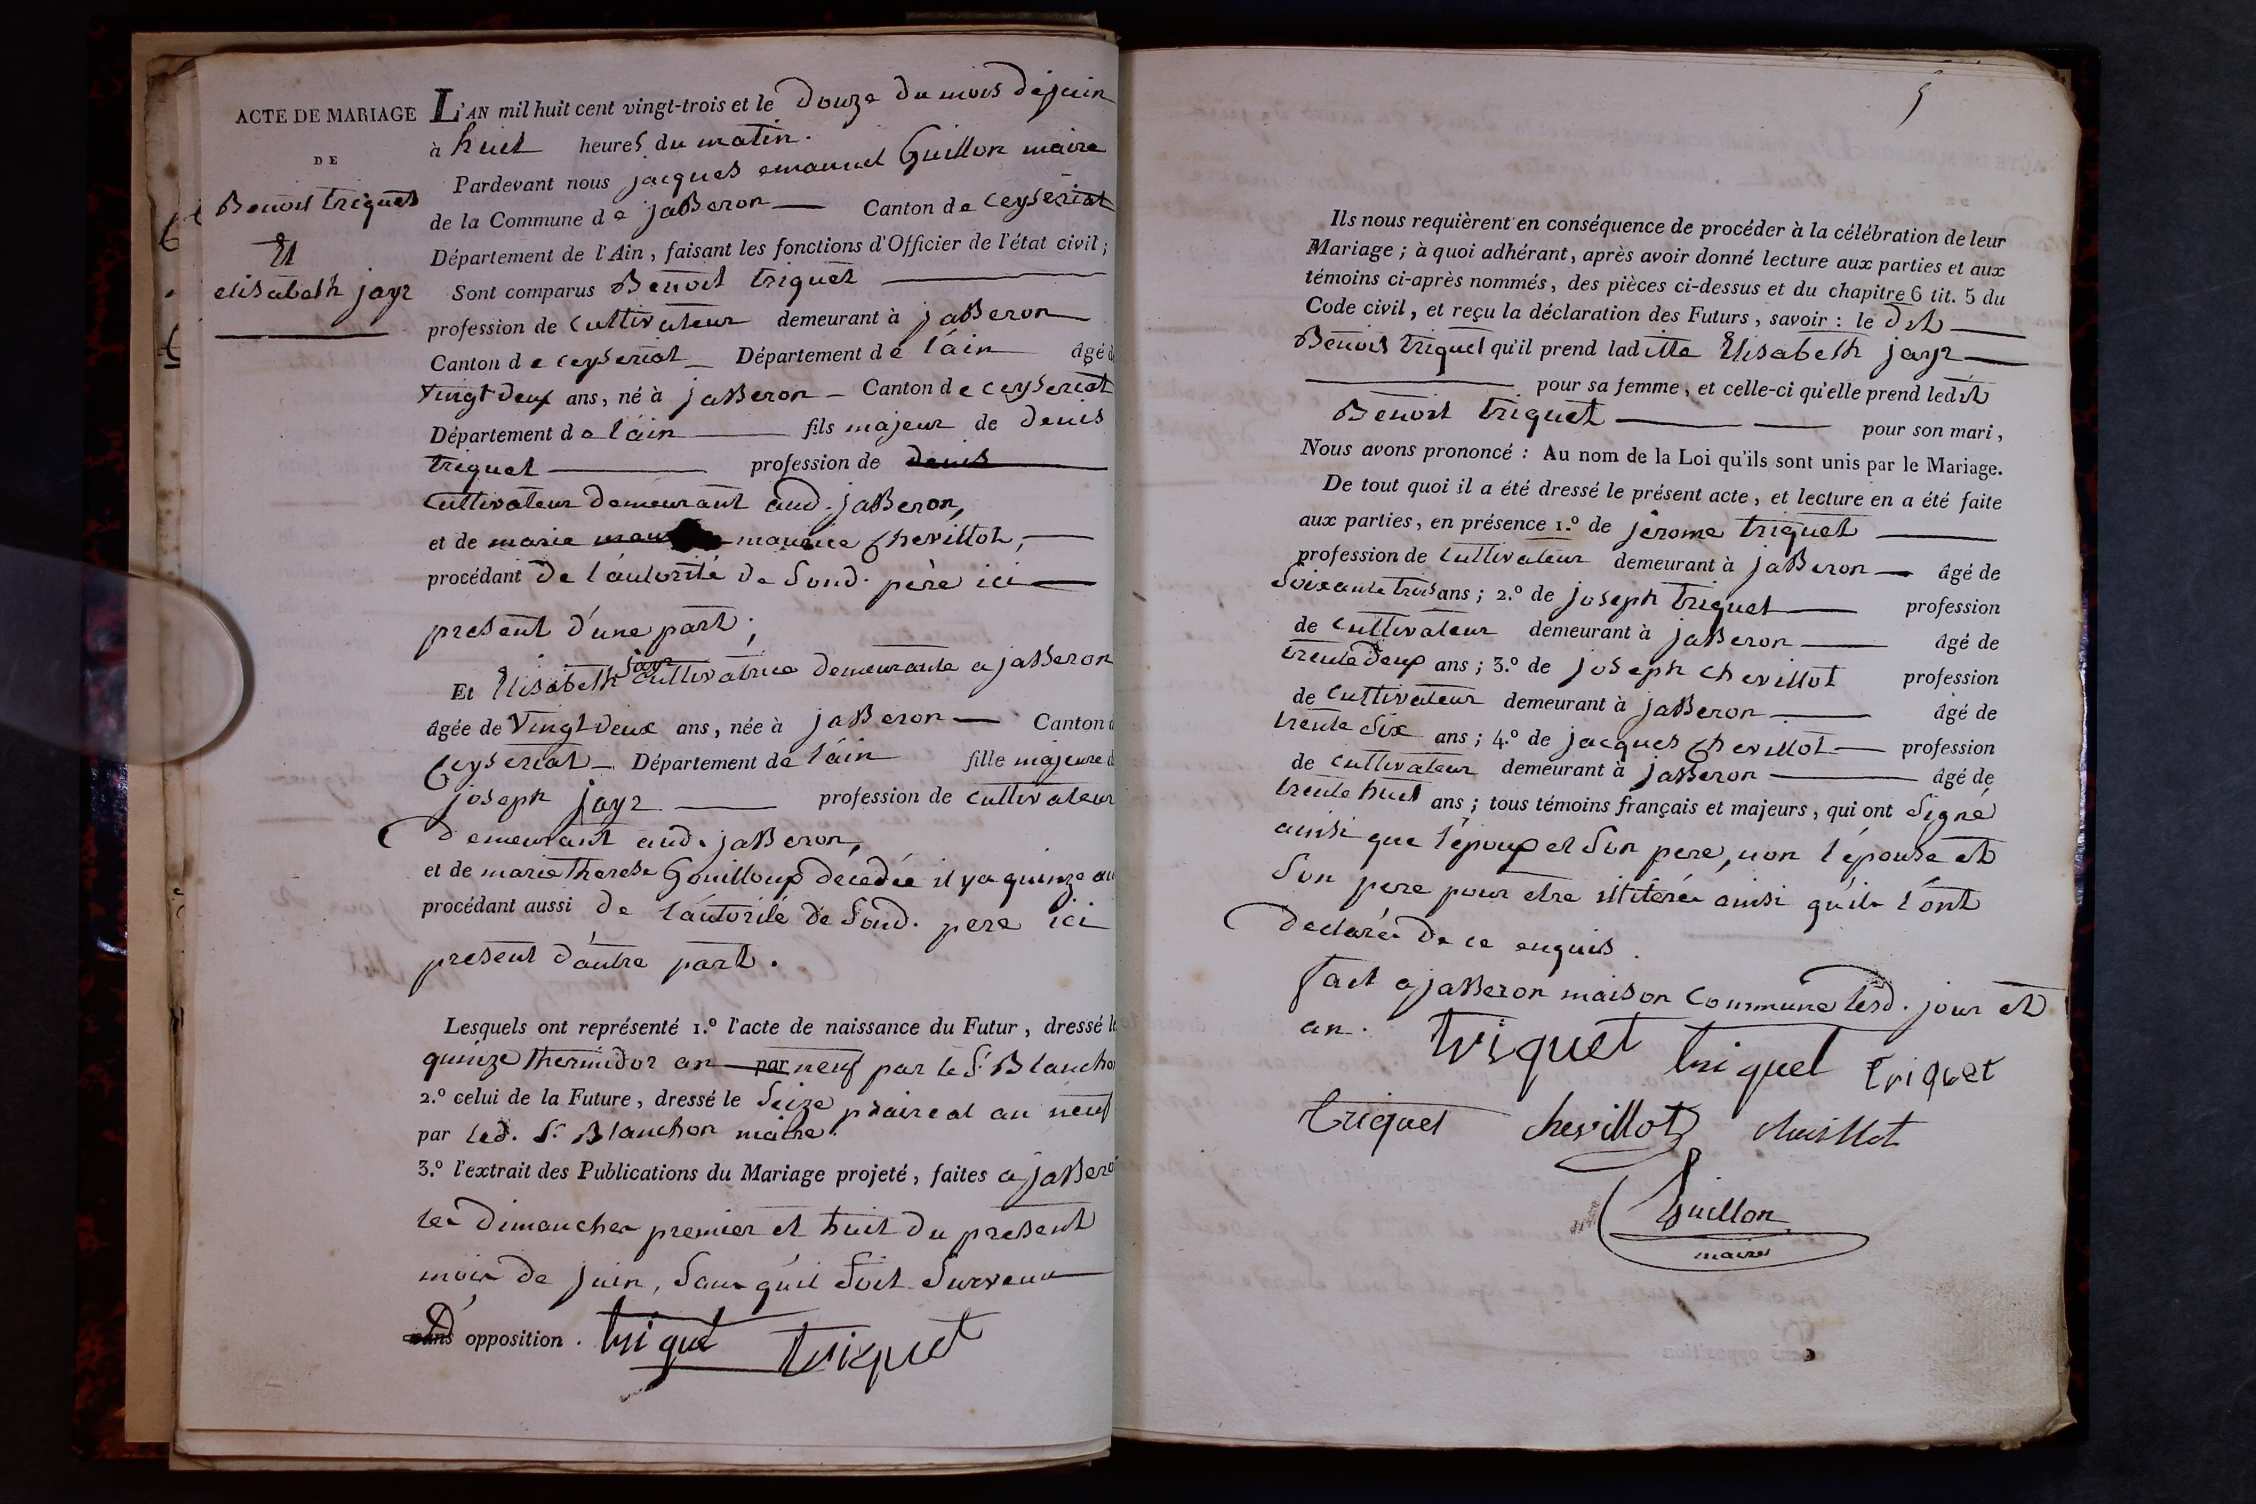 ACTE DE MARIAGE
DE
Benoit triquet
Et
elisabeth jayr
L'AN mil huit cent vingt-trois et le douze du mois de juin
à huit heures du matin.
Pardevant nous jacques emanuel Guillon maire
de la Commune de jasseron Canton de ceyseriat
Département de l'Ain, faisant les fonctions d'Officier de l'état civil;
Sont comparus Benoit triquet
profession de cultivateur demeurant à jasseron
Canton de ceyseriat Département de l'ain âgé d
vingt deux ans, né à jasseron Canton de ceyseriat
Département de l'ain fils majeur de denis
triquet profession de denis
cultivateur demeurant aud. jasseron,
et de marie maurice chevillot,
procédant de l'autorité de sond. père ici
present d'une part;
Et Elisabeth jayr cultivatrice demeurante a jasseron
âgée de vingt deux ans, née à jasseron Canton d
Ceyseriat Département de l'ain fille majeure d
joseph jayr profession de cultivateur
demeurant aud. jasseron,
et de marie therese Gouilloux décédée il ya quinze an
procédant aussi de l'autorité de sond. pere ici
present d'autre part.
Lesquels ont représenté 1.º l'acte de naissance du Futur, dressé le
quinze thermidor an par neuf par le Sr Blanchon
2.º celui de la Future, dressé le seize prairial an neuf
par led. Sr Blanchon maire.
3.º l'extrait des Publications du Mariage projeté, faites a jassero
les dimanches premier et huit du present
mois de juin, sans qu'il soit survenu
d' sans opposition. triquet triquet
5
Ils nous requièrent en conséquence de procéder à la célébration de leur
Mariage; à quoi adhérant, après avoir donné lecture aux parties et aux
témoins ci-après nommés, des pièces ci-dessus et du chapitre 6 tit. 5 du
Code civil, et reçu la déclaration des Futurs, savoir: le dit
Benoit triquet qu'il prend laditte Elisabeth jayr
pour sa femme, et celle-ci qu'elle prend ledit
Benoit triquet pour son mari,
Nous avons prononcé: Au nom de la Loi qu'ils sont unis par le Mariage.
De tout quoi il a été dressé le présent acte, et lecture en a été faite
aux parties, en présence 1.º de jerome triquet
profession de cultivateur demeurant à jasseron âgé de
soixante trois ans; 2.º de joseph triquet profession
de cultivateur demeurant à jasseron âgé de
trente deux ans; 3.º de joseph chevillot profession
de cultivateur demeurant à jasseron âgé de
trente six ans; 4.º de jacques chevillot profession
de cultivateur demeurant à jasseron âgé de
trente huit ans; tous témoins français et majeurs, qui ont signé
ainsi que l'époux et son pere, non l'épouse et
son pere pour etre illiterés ainsi qu'ils l'ont
declarés de ce enquis.
fait a jasseron maison commune lesd. jour et
an. triquet triquet triquet
triquet chevillot chevillot
Guillon
maire